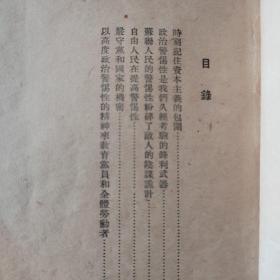 目錄
時刻記住資本主義的包圍
政治警惕性是我們久經考驗的鋒利武器
蘇聯人民的警惕性粉碎了敵人的陰謀詭計
自由人民在提高警惕性
嚴守黨和國家的機密
以高度政治警惕性的精神來教育黨員和全體勞動者